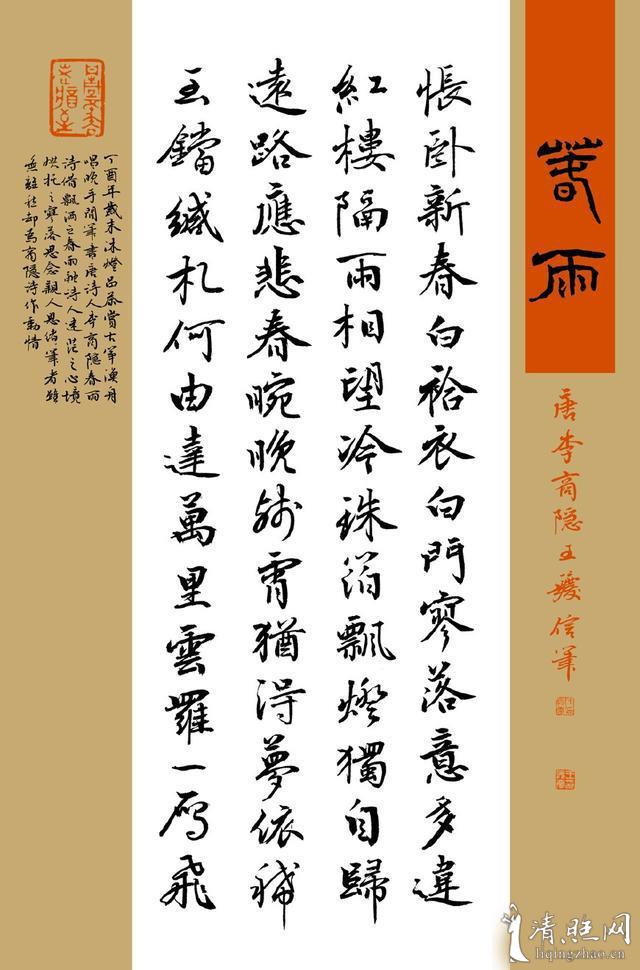 春雨
唐李商隐王信筆
悵卧新春白袷衣白門寥落意多違
紅樓隔雨相望冷珠箔飄燈獨自歸
遠路應悲春晼晚殘霄猶得夢依稀
玉鐺緘札何由達萬里雲羅一雁飛
丁酉年歲末沐燈品茶賞古箏漁舟
唱晚手閒筆書唐詩人李商隐春雨
詩借飄洒之春雨詩人迷茫之心境
烘托之寥落思念親人思緒筆者雖
無却為商隐詩作動情
清照网
liqingzhao.cn